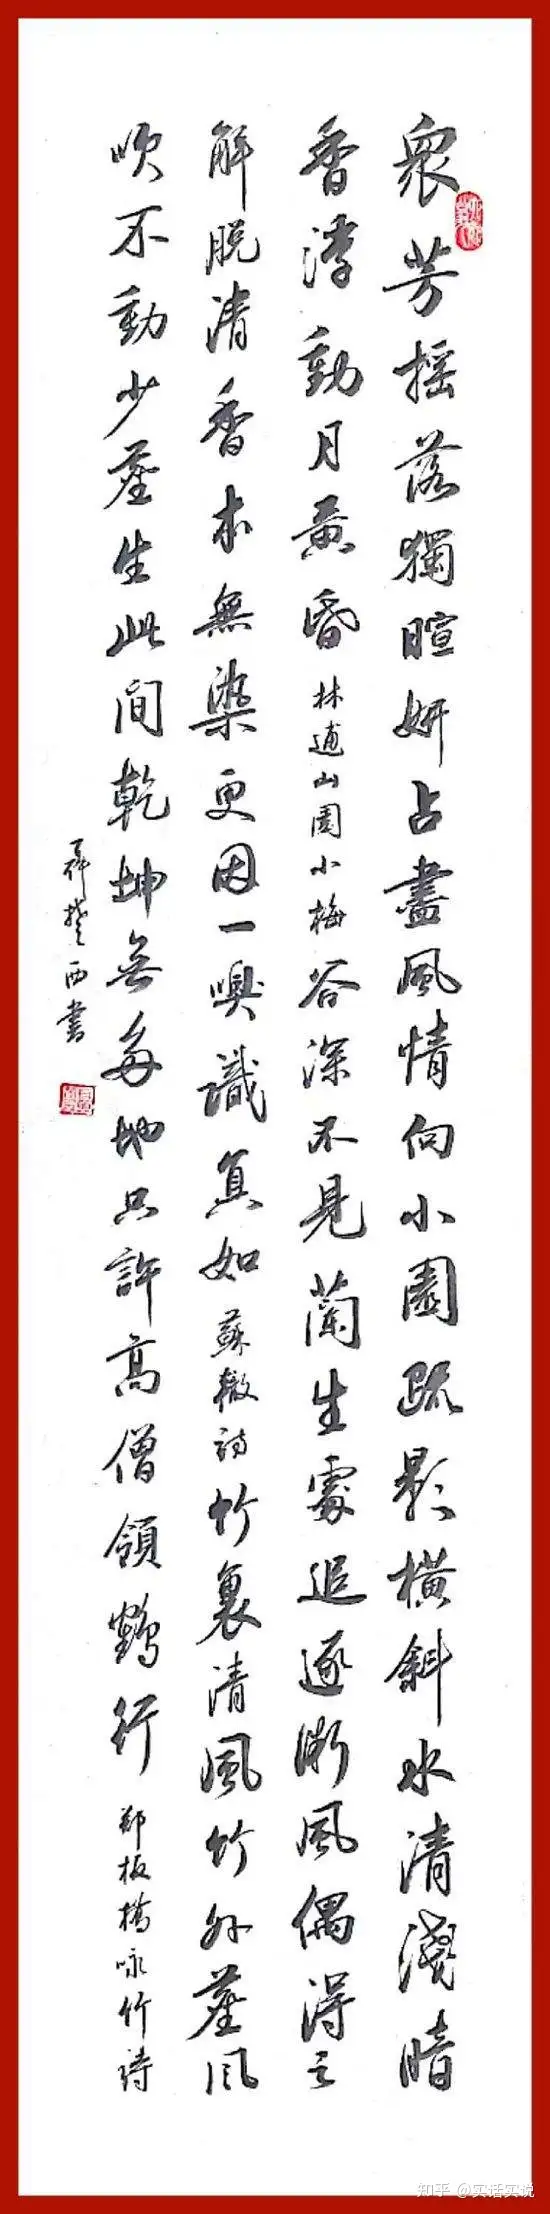 衆芳摇落獨暄妍占盡風情向小園疏影横斜水清淺暗
香浮動月黄昏林逋山園小梅谷深不見蘭生處追逐微風偶得之
解脱清香本無染更因一嗅識真如蘇轍詩竹裏清風竹外塵風
吹不動少塵生此間乾坤無多地只許高僧領鶴行郑板橋咏竹詩
西書
知乎 @实话实说